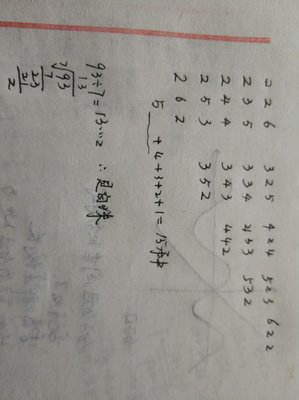 2 2 6 3 2 5 4 2 4 5 2 3 6 2 2
2 3 5 3 3 4 4 3 3 5 3 2
2 4 4 3 4 3 4 4 2
2 5 3 3 5 2
2 6 2
5 + 4+3+2+1=15种
93÷7=13……2 ∴是
13
7√93
7
23
21
2